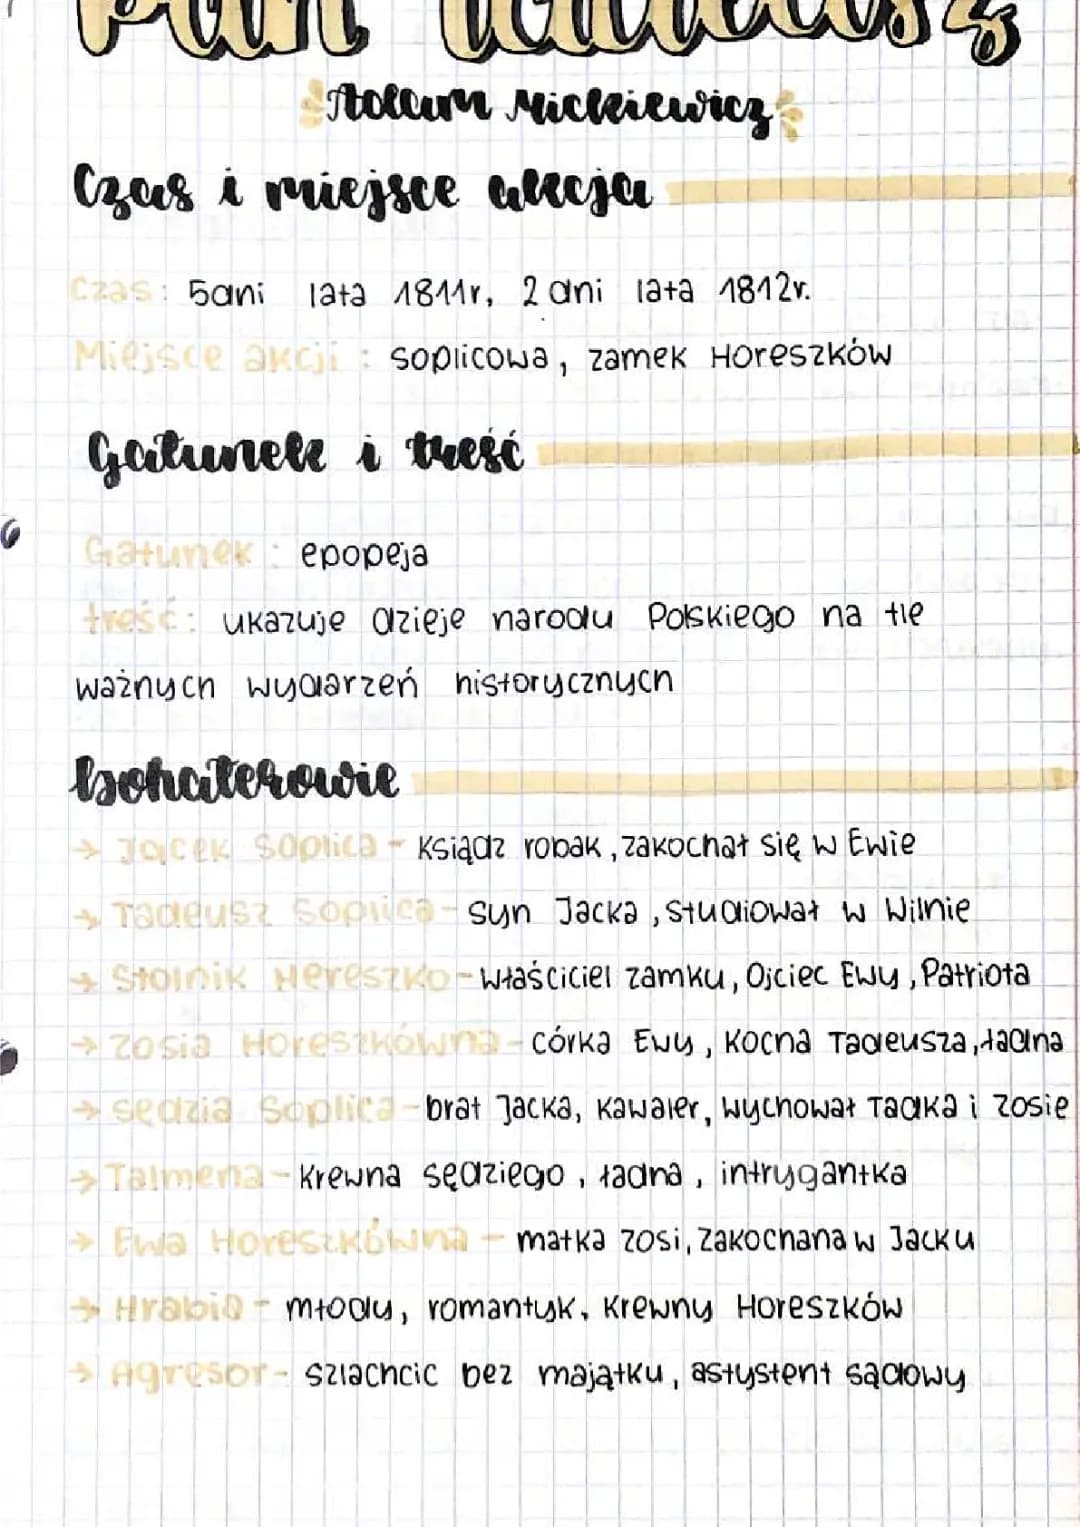 Pan Tadeusz
Adam Mickiewicz
Czas i miejsce akcja
Czas: 5dni lata 1811r, 2 dni lata 1812r.
Miejsce akcji: soplicowa, zamek Horeszków
Gatunek i treść
Gatunek: epopeja
treść: ukazuje dzieje narodu Polskiego na tle
ważnych wydarzeń historycznych
bohaterowie
→ Jacek Soplica - Ksiądz robak, zakochał się w Ewie
→ Tadeusz Soplica - syn Jacka, studiował w Wilnie
→ Stolnik Hereszko - właściciel zamku, Ojciec Ewy, Patriota
→ Zosia Horeszkówna - córka Ewy, kocha Tadeusza, ładna
→ sędzia Soplica - brat Jacka, kawaler, wychował Tadka i Zosie
→ Talmena - krewna sędziego, ładna, intrygantka
→ Ewa Horeszkówna - matka zosi, zakochana w Jacku
→ Hrabia - młody, romantyk, krewny Horeszków
→ Agresor - szlachcic bez majątku, astystent sądowy